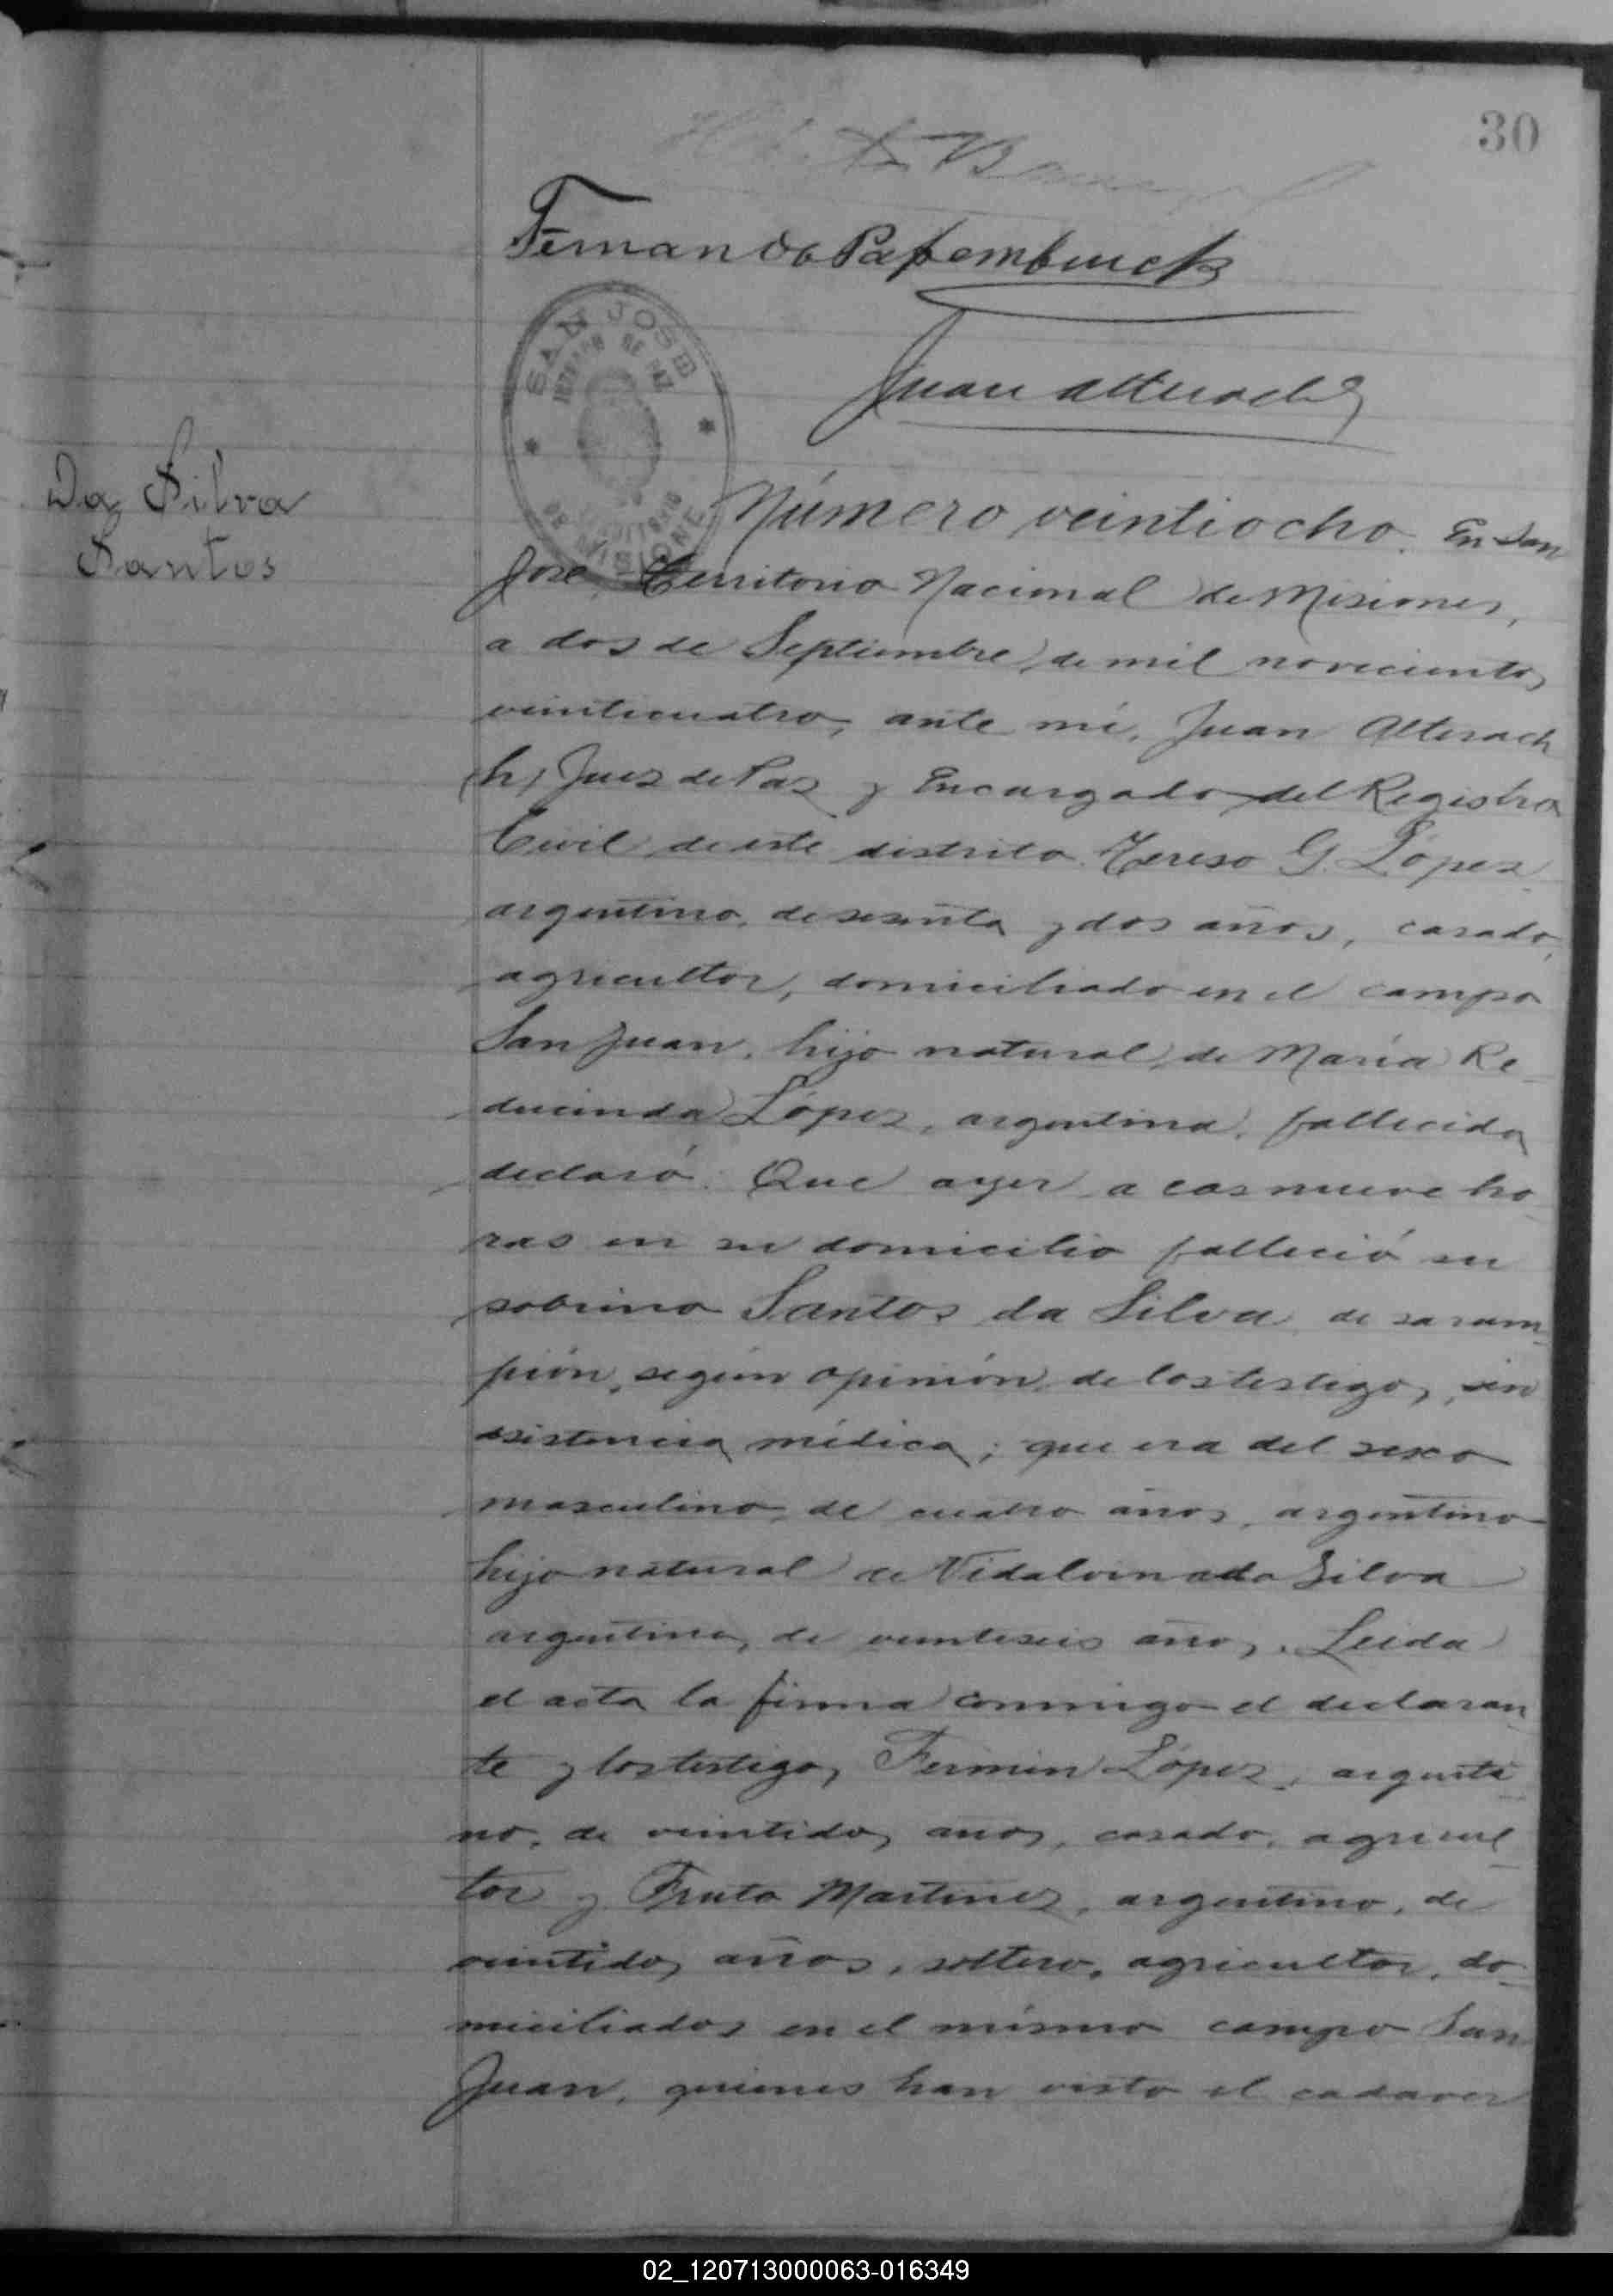 30
Fernando Papembuck
SAN JOSE
JUZGADO DE PAZ
TERRITORIO
DE MISIONES
Juan Alterach
Da Silva
Santos
Número veintiocho. En San
José Territorio Nacional de Misiones,
a dos de Septiembre de mil novecientos
veinticuatro, ante mí, Juan Alterach
(h) Juez de Paz y Encargado del Registro
Civil de este distrito. Tereso G. López
argentino, de sesenta y dos años, casado,
agricultor, domiciliado en el campo
San Juan, hijo natural de María Re-
ducinda López, argentina, fallecida
declaró: Que ayer a las nueve ho-
ras en su domicilio falleció su
sobrino Santos da Silva, de saram-
pión, según opinión de los testigos, sin
asistencia médica; que era del sexo
masculino, de cuatro años, argentino
hijo natural de Vidalvina da Silva
argentina, de veintiseis años. Leida
el acta la firma conmigo el declaran
te y los testigos, Fermin López, argenti-
no, de veintidos años, casado, agricul-
tor y Fruto Martinez, argentino, de
veintidos años, soltero, agricultor, do-
miciliados en el mismo campo San
Juan, quienes han visto el cadaver
02_120713000063-016349